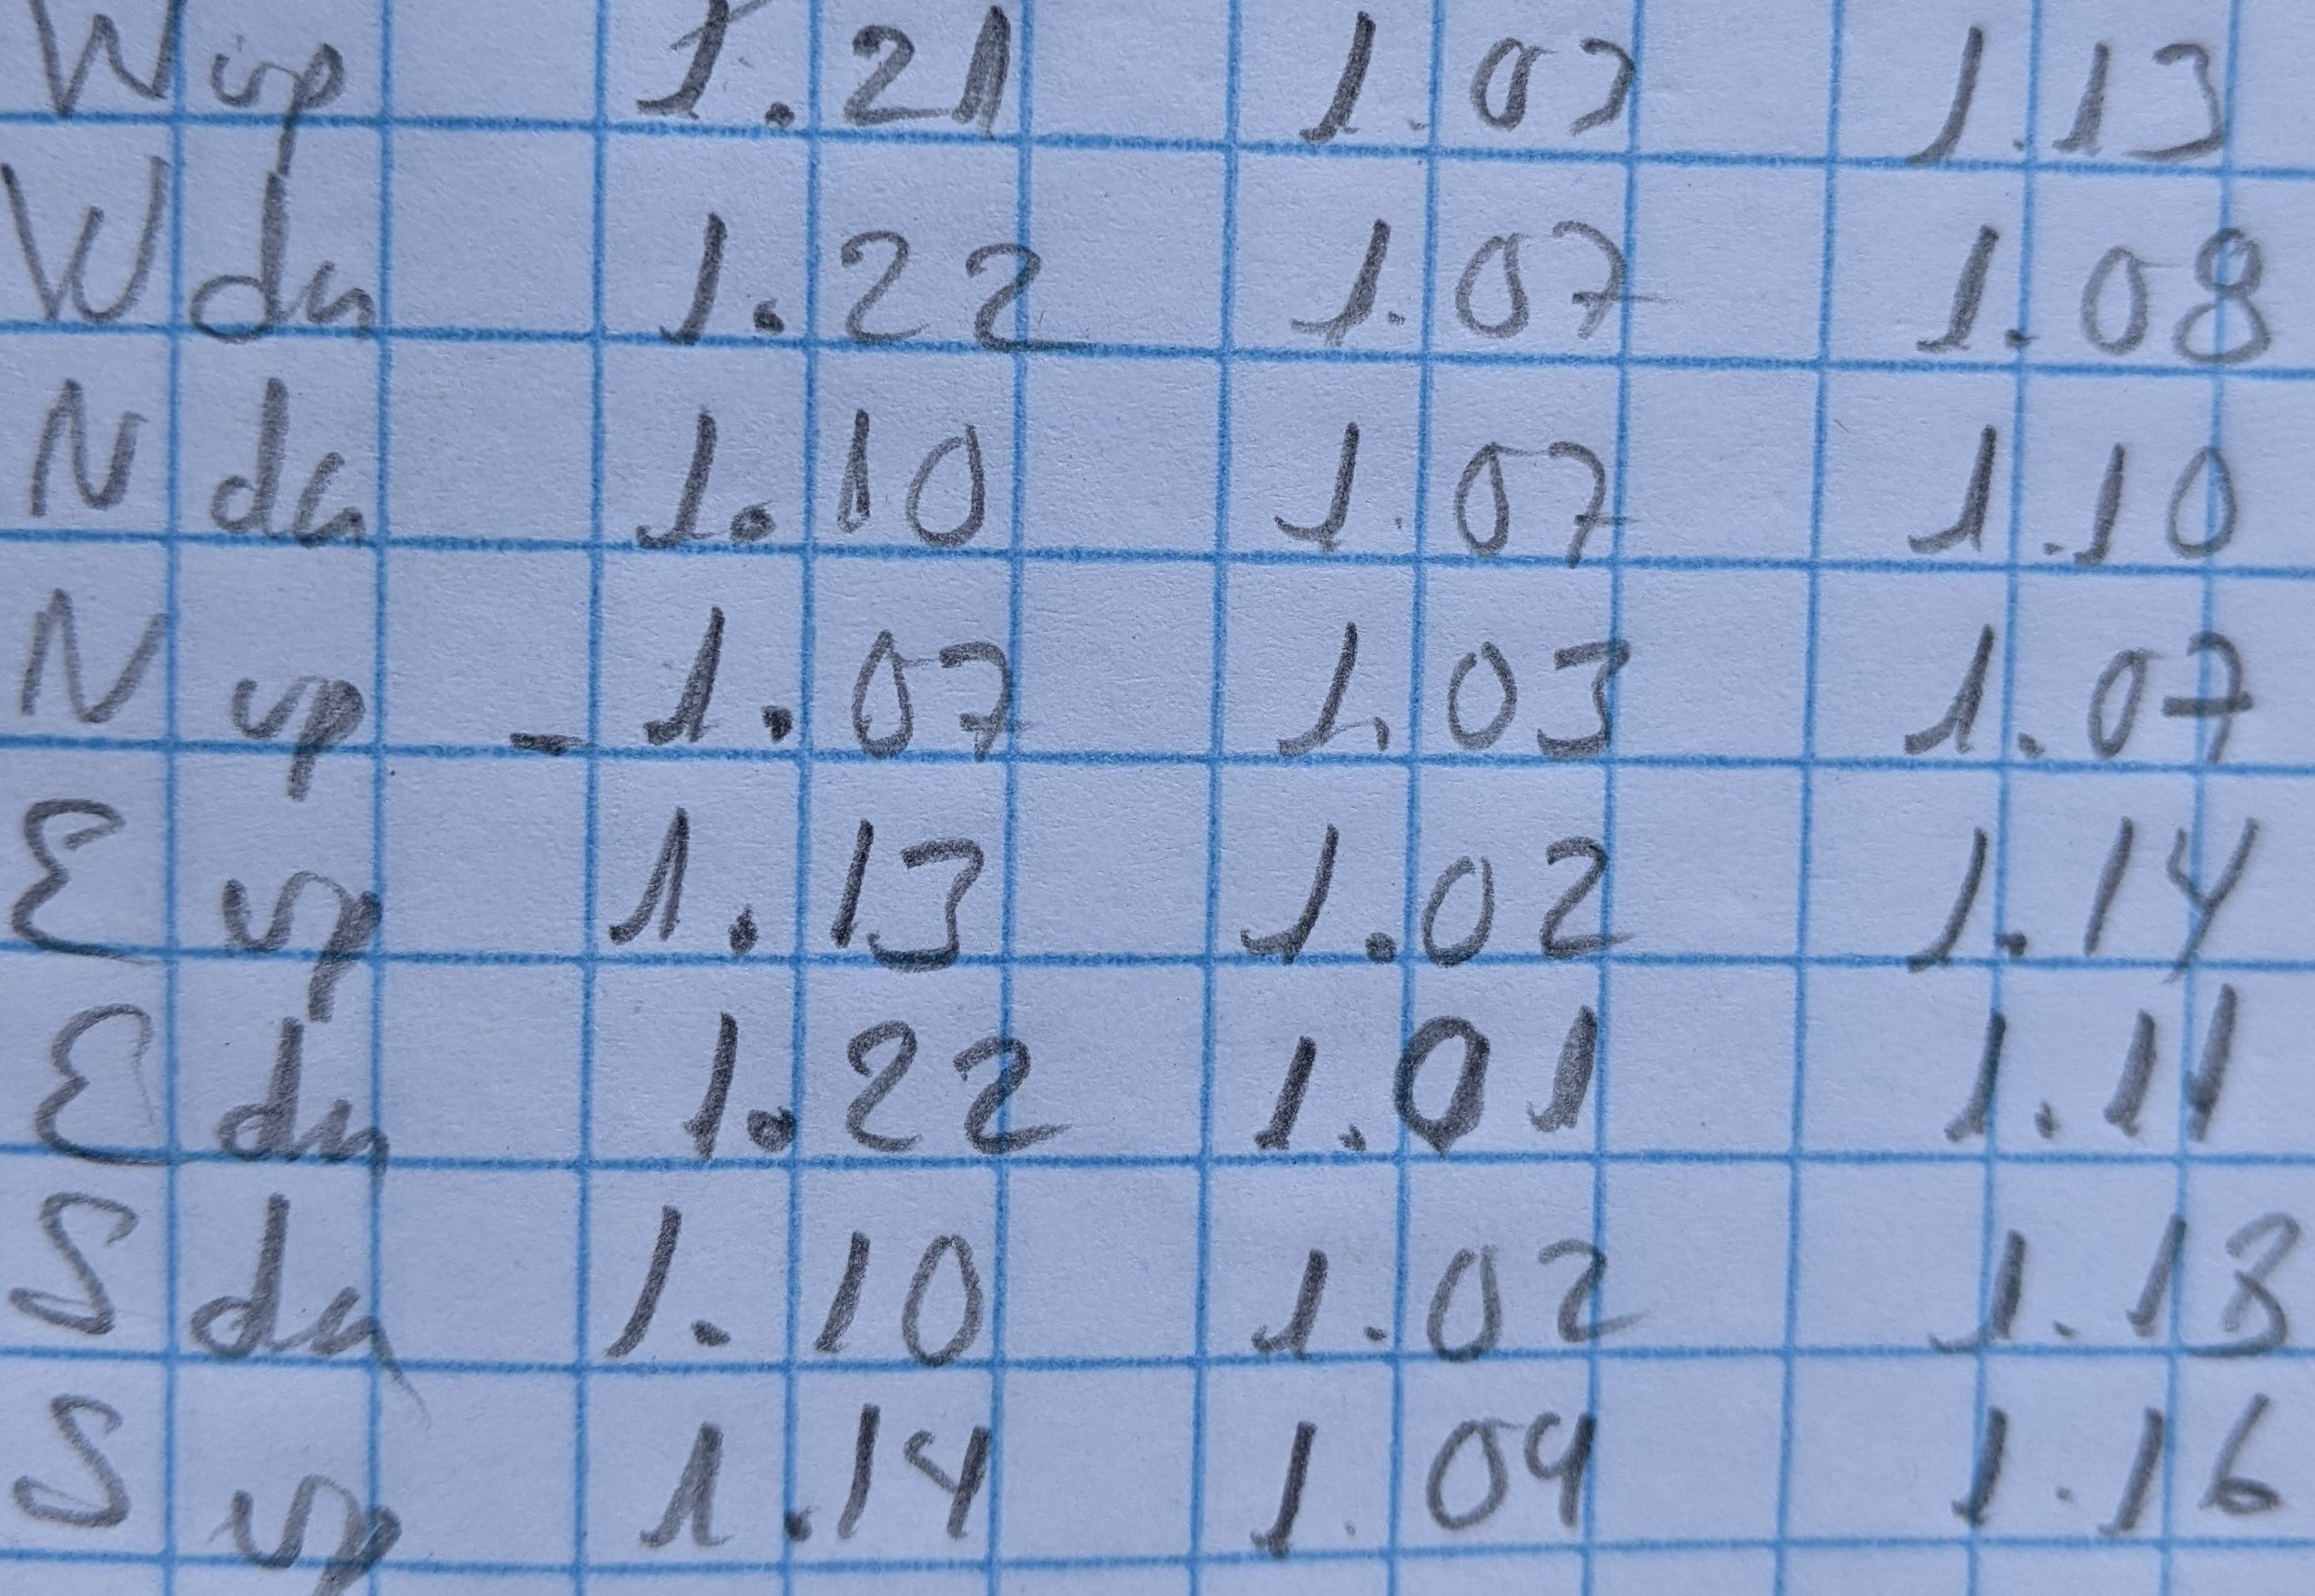 W up 1.21 1.03 1.13
W dn 1.22 1.07 1.08
N dn 1.10 1.07 1.10
N up - 1.07 1.03 1.07
E up 1.13 1.02 1.14
E dn 1.22 1.01 1.11
S dn 1.10 1.02 1.13
S up 1.14 1.04 1.16